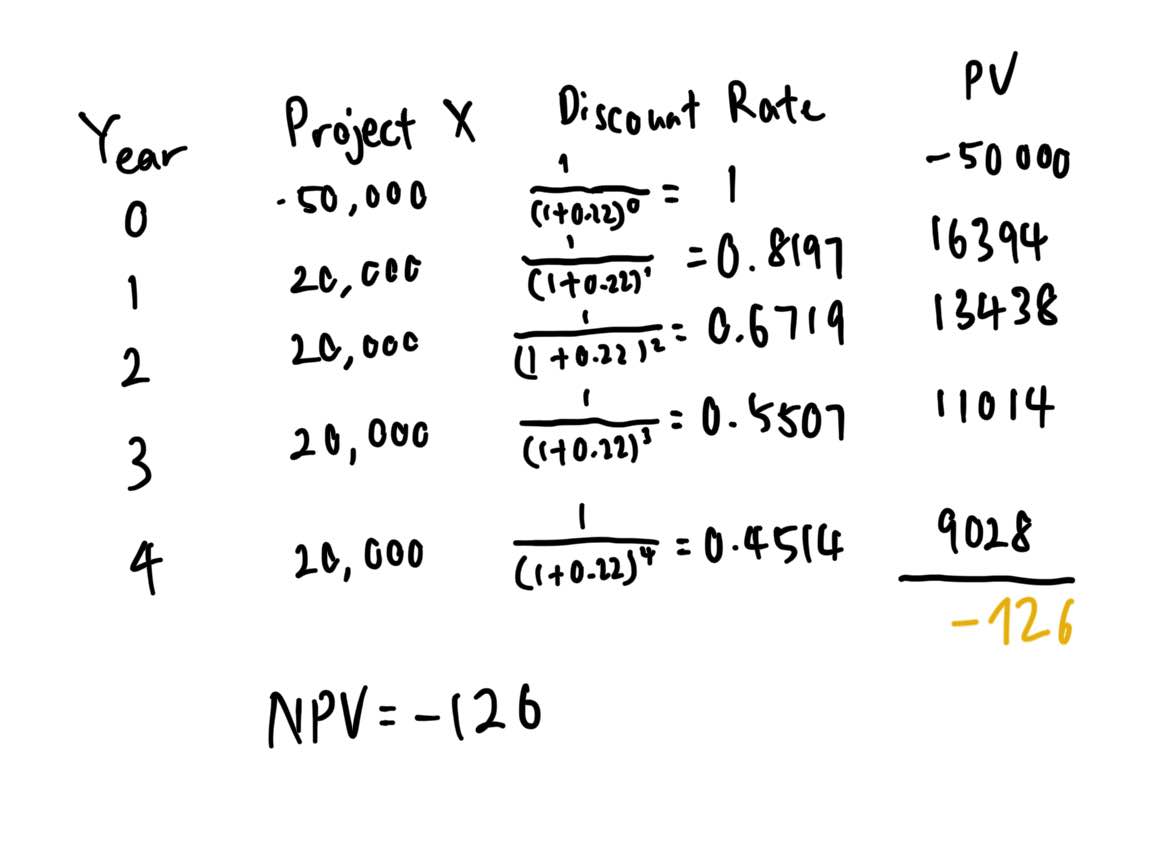 Year Project X Discount Rate PV
0 -50,000 1/(1+0.22)^0 = 1 -50 000
1 20,000 1/(1+0.22)^1 = 0.8197 16394
2 20,000 1/(1+0.22)^2 = 0.6719 13438
3 20,000 1/(1+0.22)^3 = 0.5507 11014
4 20,000 1/(1+0.22)^4 = 0.4514 9028
-126
NPV = -126